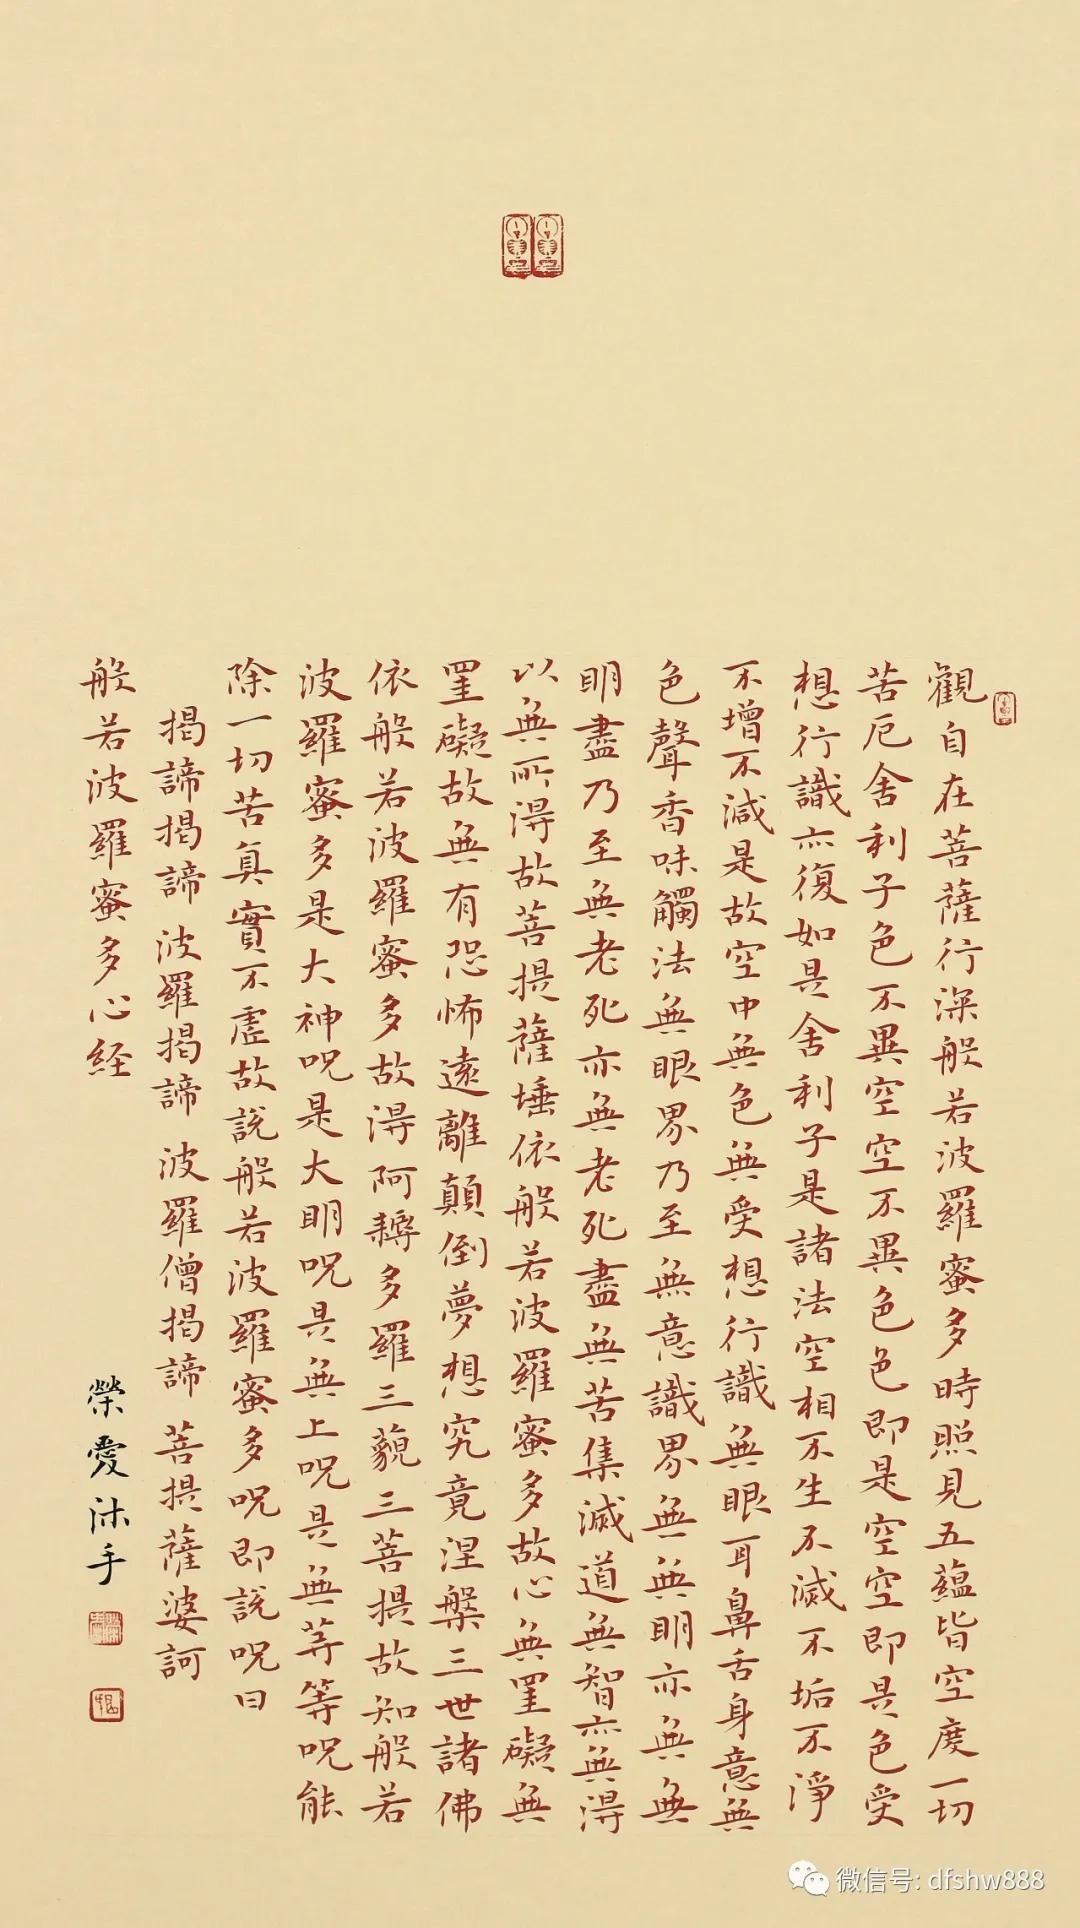 觀自在菩薩行深般若波羅蜜多時照見五蘊皆空度一切
苦厄舍利子色不異空空不異色色即是空空即是色受
想行識亦復如是舍利子是諸法空相不生不滅不垢不淨
不增不減是故空中無色無受想行識無眼耳鼻舌身意無
色聲香味觸法無眼界乃至無意識界無無明亦無無
明盡乃至無老死亦無老死盡無苦集滅道無智亦無得
以無所得故菩提薩埵依般若波羅蜜多故心無罣礙無
罣礙故無有恐怖遠離顛倒夢想究竟涅槃三世諸佛
依般若波羅蜜多故得阿耨多羅三藐三菩提故知般若
波羅蜜多是大神呪是大明呪是無上呪是無等等呪能
除一切苦真實不虛故說般若波羅蜜多呪即說呪曰
揭諦揭諦 波羅揭諦 波羅僧揭諦 菩提薩婆訶
般若波羅蜜多心経
榮愛沐手
微信号: dfshw888